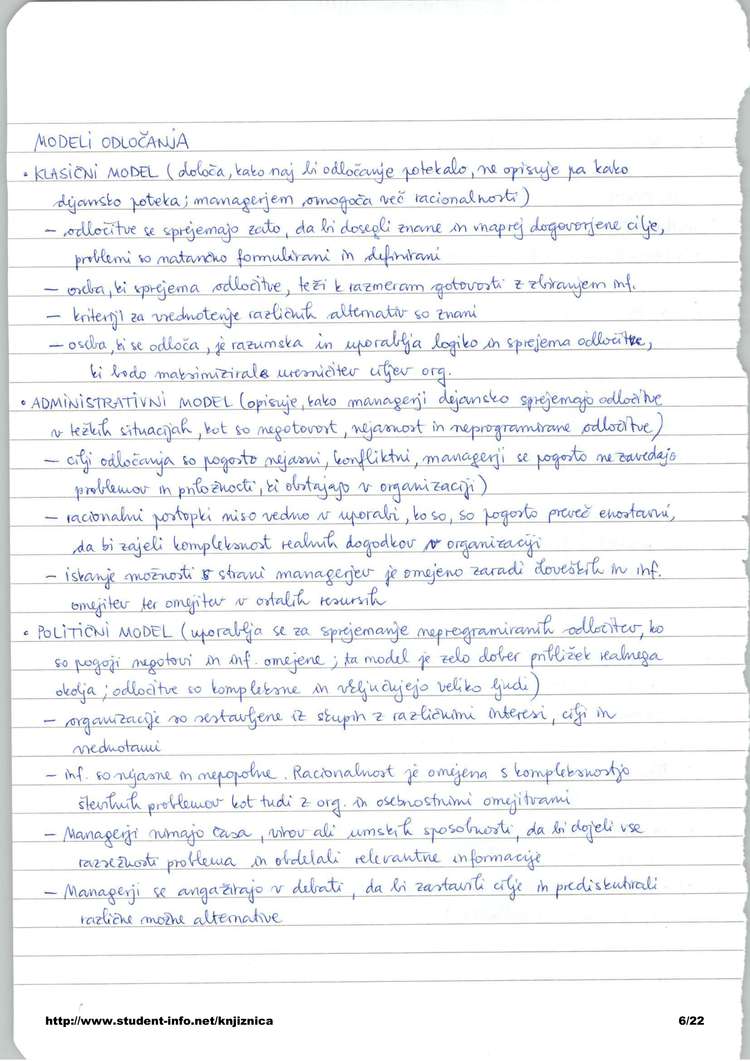 MODELI ODLOČANJA
• KLASIČNI MODEL (določa, kako naj bi odločanje potekalo, ne opisuje pa kako
dejansko poteka; managerjem omogoča več racionalnosti)
– odločitve se sprejemajo zato, da bi dosegli znane in vnaprej dogovorjene cilje,
problemi so natančno formulirani in definirani
– oseba, ki sprejema odločitve, teži k razmeram gotovosti z zbiranjem inf.
– kriteriji za vrednotenje različnih alternativ so znani
– oseba, ki se odloča, je razumska in uporablja logiko in sprejema odločitve,
ki bodo maksimizirale uresničitev ciljev org.
• ADMINISTRATIVNI MODEL (opisuje, kako managerji dejansko sprejemajo odločitve
v težkih situacijah, kot so negotovost, nejasnost in neprogramirane odločitve)
– cilji odločanja so pogosto nejasni, konfliktni, managerji se pogosto ne zavedajo
problemov in priložnosti, ki obstajajo v organizaciji)
– racionalni postopki niso vedno v uporabi, ko so, so pogosto preveč enostavni,
da bi zajeli kompleksnost realnih dogodkov v organizaciji
– iskanje možnosti s strani managerjev je omejeno zaradi človeških in inf.
omejitev ter omejitev v ostalih resursih
• POLITIČNI MODEL (uporablja se za sprejemanje neprogramiranih odločitev, ko
so pogoji negotovi in inf. omejene; ta model je zelo dober približek realnega
okolja; odločitve so kompleksne in vključujejo veliko ljudi)
– organizacije so sestavljene iz skupin z različnimi interesi, cilji in
vrednotami
– inf. so nejasne in nepopolne. Racionalnost je omejena s kompleksnostjo
številnih problemov kot tudi z org. in osebnostnimi omejitvami
– Managerji nimajo časa, virov ali umskih sposobnosti, da bi dojeli vse
razsežnosti problema in obdelali relevantne informacije
– Managerji se angažirajo v debati, da bi zastavili cilje in prediskutirali
različne možne alternative
http://www.student-info.net/knjiznica 6/22